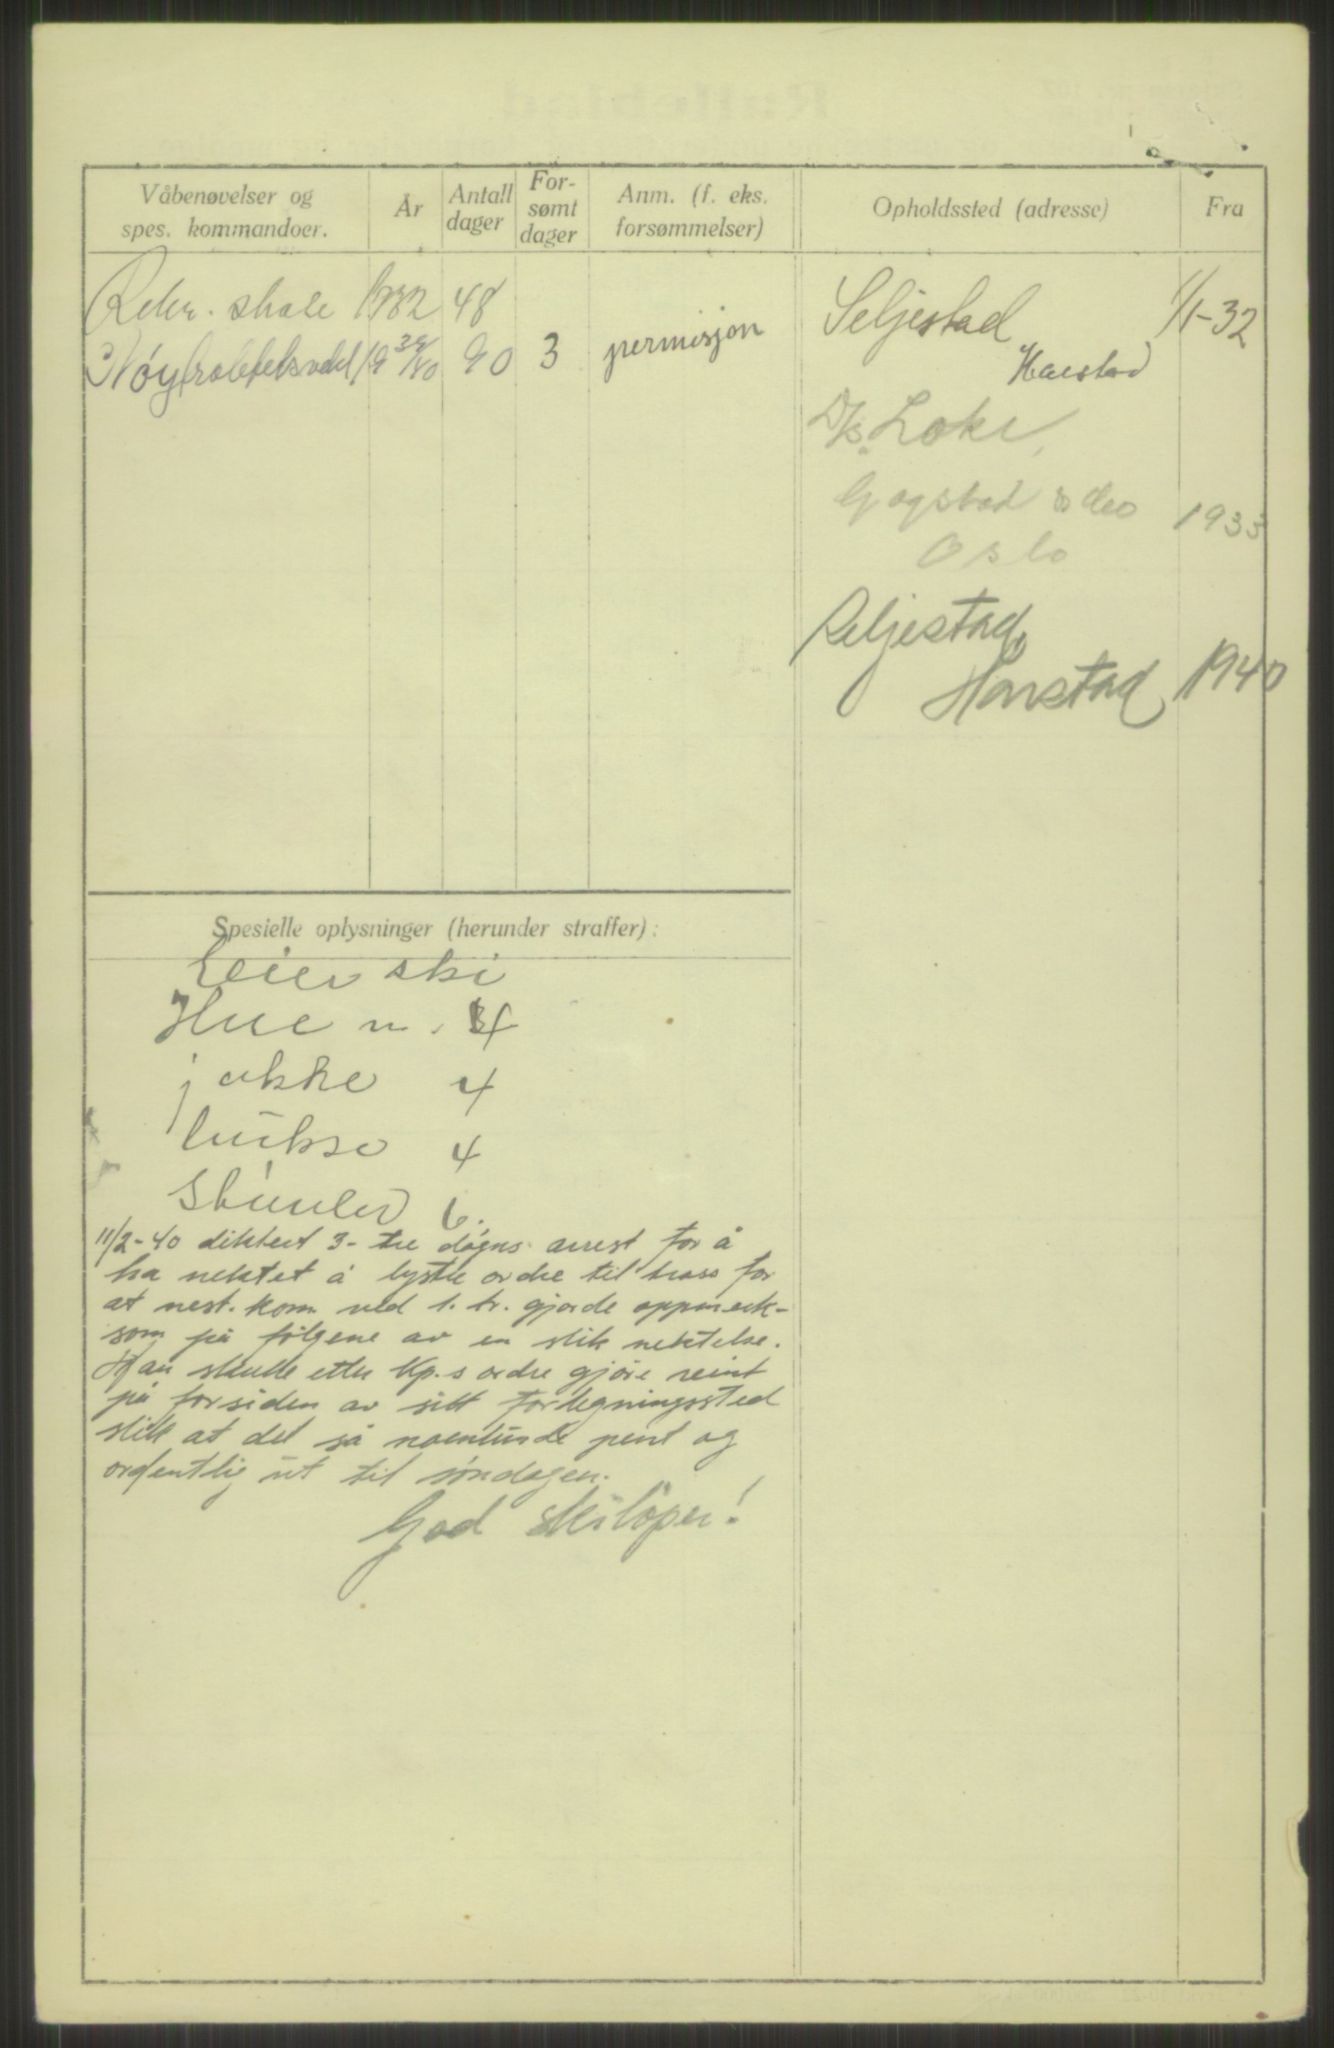 Våbenøvelser og
spes. kommandoer.
År
Antall
dager
For-
sømt
dager
Anm. (f. eks.
forsømmelser)
Opholdssted (adresse)
Fra
Rekr. skole 1932 48
Nøytralitetsvakt 19 39/40 90 3 permisjon
Seljestad 1/1-32
Harstad
D/s. Loke,
Gogstad 1933
Oslo
Seljestad,
Harstad 1940
Spesielle oplysninger (herunder straffer):
Eier ski
Hue n. 4
jakke 4
bukse 4
Støvler 6.
11/2-40 diktert 3- tre døgns arrest for å
ha nektet å lystre ordre til tross for
at nest. kom. ved 1. tr. gjorde oppmerk-
som på følgene av en slik nektelse.
Han skulle etter Kp.s ordre gjøre reint
på forsiden av sitt forlegningssted
slik at det så noenlunde pent og
ordentlig ut til søndagen.
God skiløper!